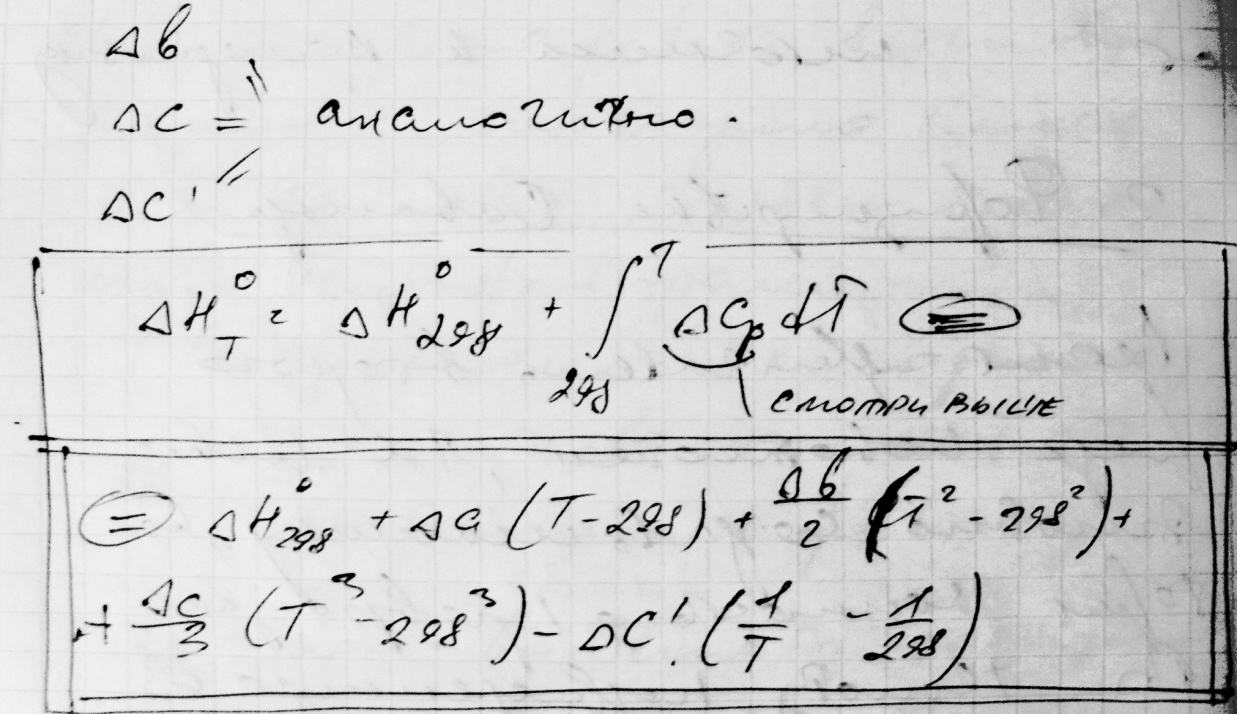 Δb
Δc = аналогично.
Δc' =
ΔH°_T = ΔH°_298 + ∫_298^T ΔCp dT =
смотри выше
= ΔH°_298 + Δa (T - 298) + Δb/2 (T² - 298²) +
+ Δc/3 (T³ - 298³) - Δc' (1/T - 1/298)